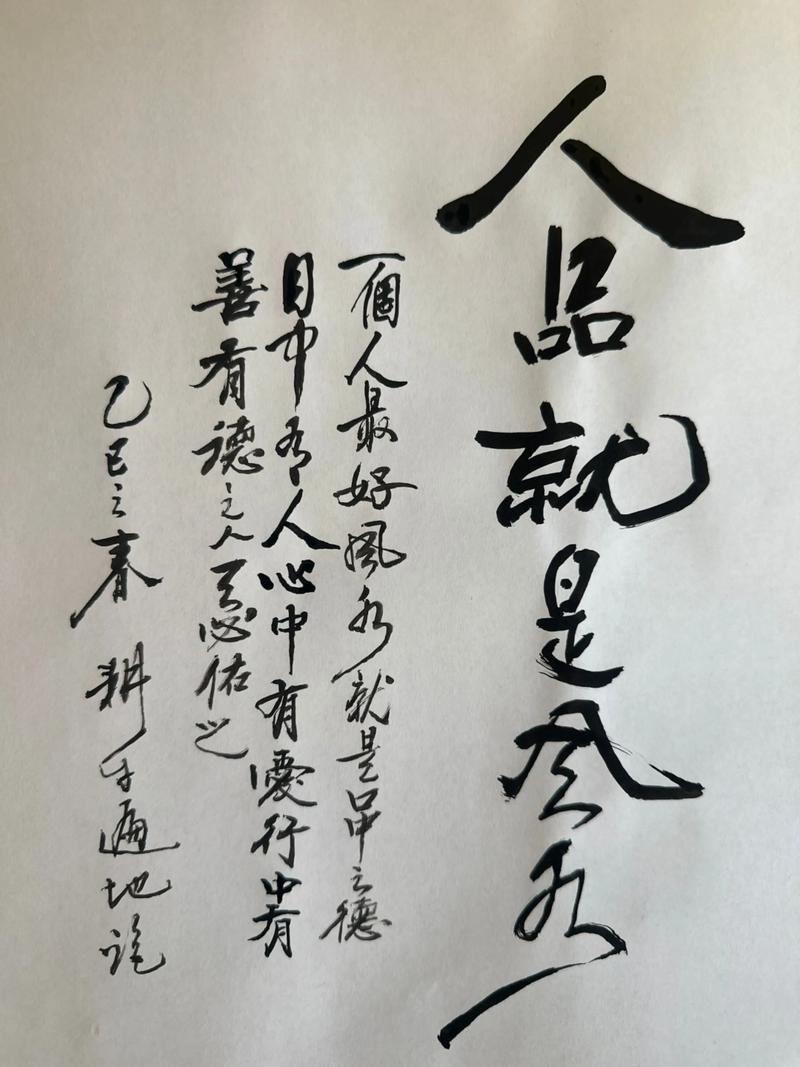 人品就是风水
一個人最好風水就是口中之德
目中有人心中有愛行中有
善有德之人天必佑之
乙巳之春 耕牛遍地跑